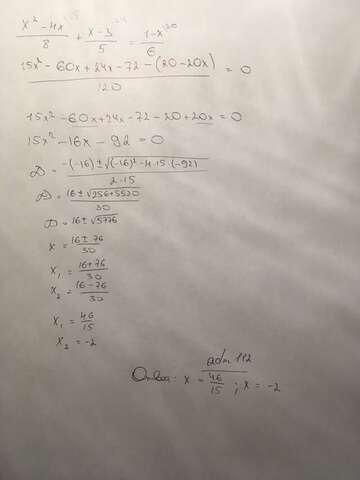 x² - 4x \15 / 8 + x - 3 \24 / 5 = 1 - x \20 / 6
15x² - 60x + 24x - 72 - (20 - 20x) / 120 = 0
15x² - 60x + 24x - 72 - 20 + 20x = 0
15x² - 16x - 92 = 0
D = -(-16) ± √(-16)² - 4·15·(-92) / 2·15
D = 16 ± √256 + 5520 / 30
D = 16 ± √5776
x = 16 ± 76 / 30
x₁ = 16 + 76 / 30
x₂ = 16 - 76 / 30
x₁ = 46 / 15
x₂ = -2
adm 112
Ответ: x = 46 / 15 ; x = -2